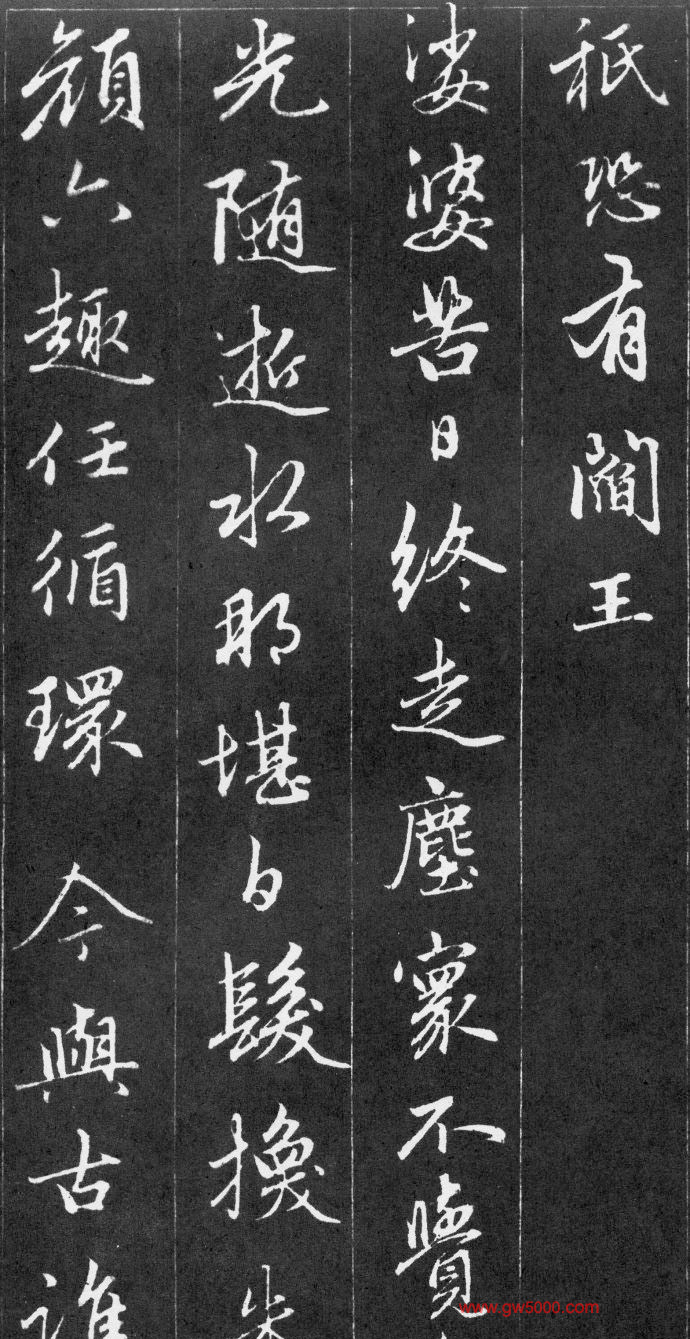 秖恐有閻王
娑婆苦日終走塵寰不覺
光隨逝水那堪白髮換朱
顏六趣任循環 今與古誰
www.gw5000.com